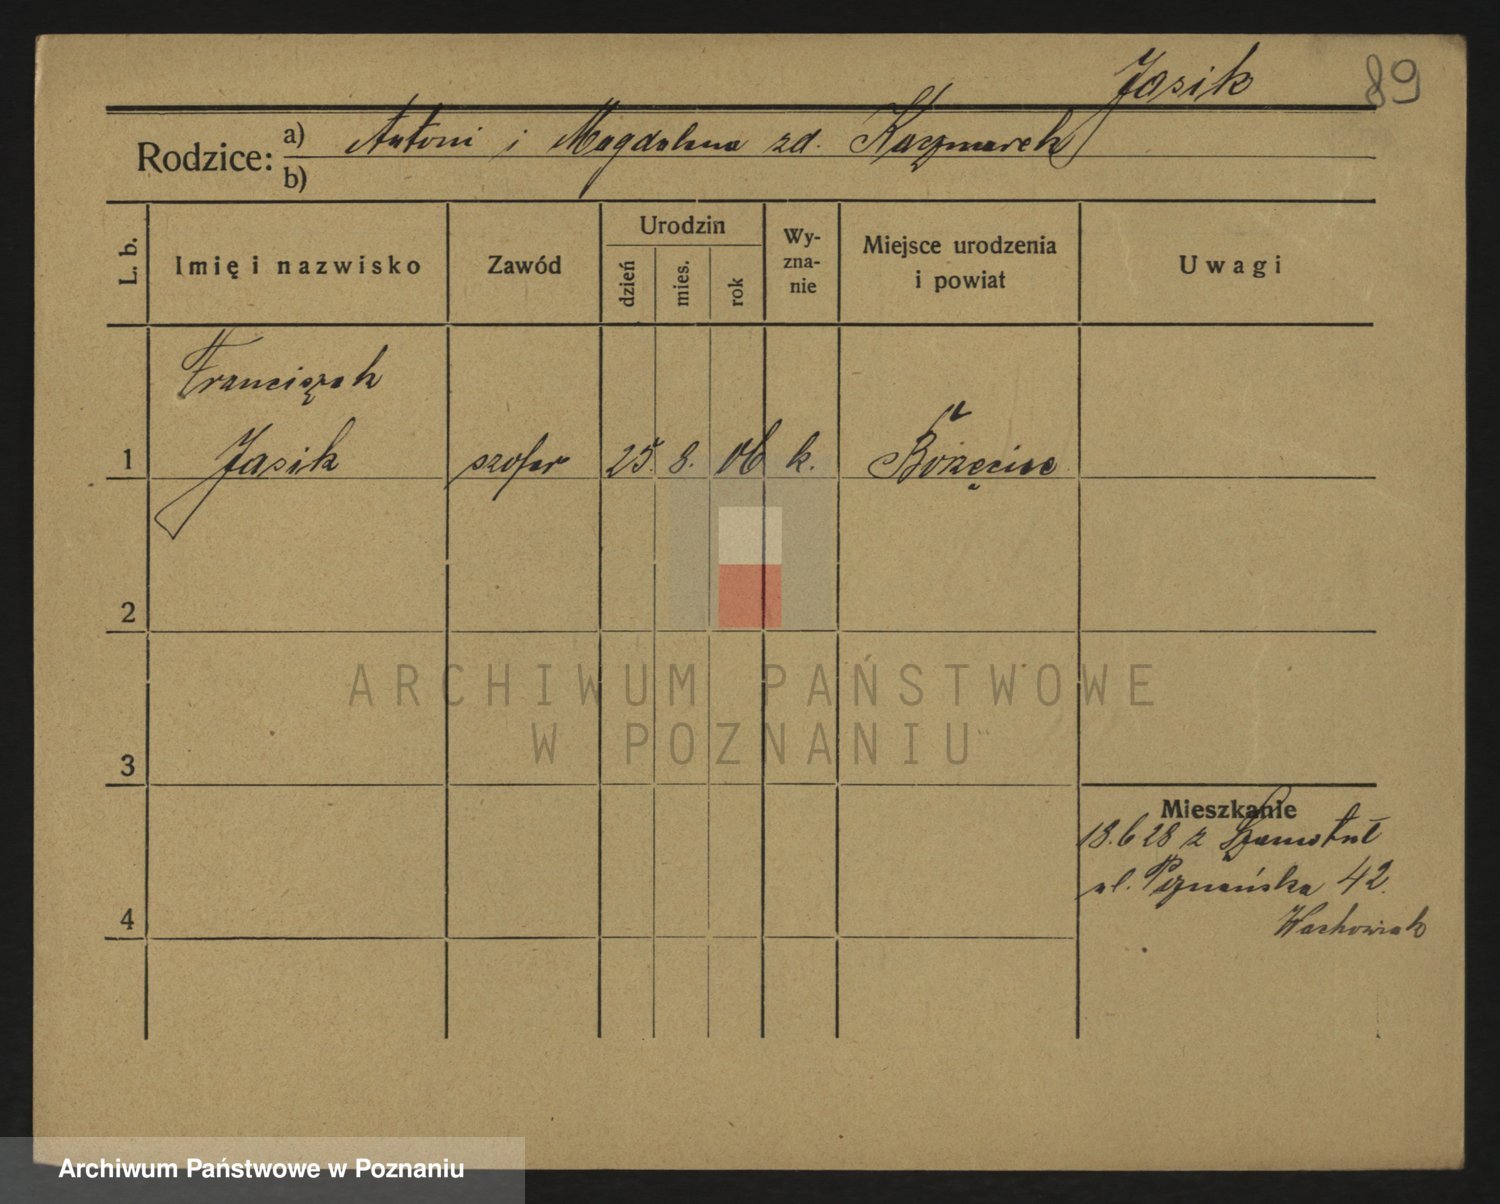 Jasik 89
Rodzice: a) Antoni i Magdalena zd. Kaczmarek
b)
L. b.
Imię i nazwisko
Zawód
Urodzin
dzień
mies.
rok
Wy-
zna-
nie
Miejsce urodzenia
i powiat
Uwagi
Franciszek
1 Jasik szofer 25. 8. 06 k. Bożęcine
2
3
4
Mieszkanie
18.6 28 z Szamotuł
ul. Poznańska 42.
Wachowiak
ARCHIWUM PAŃSTWOWE
W POZNANIU
Archiwum Państwowe w Poznaniu